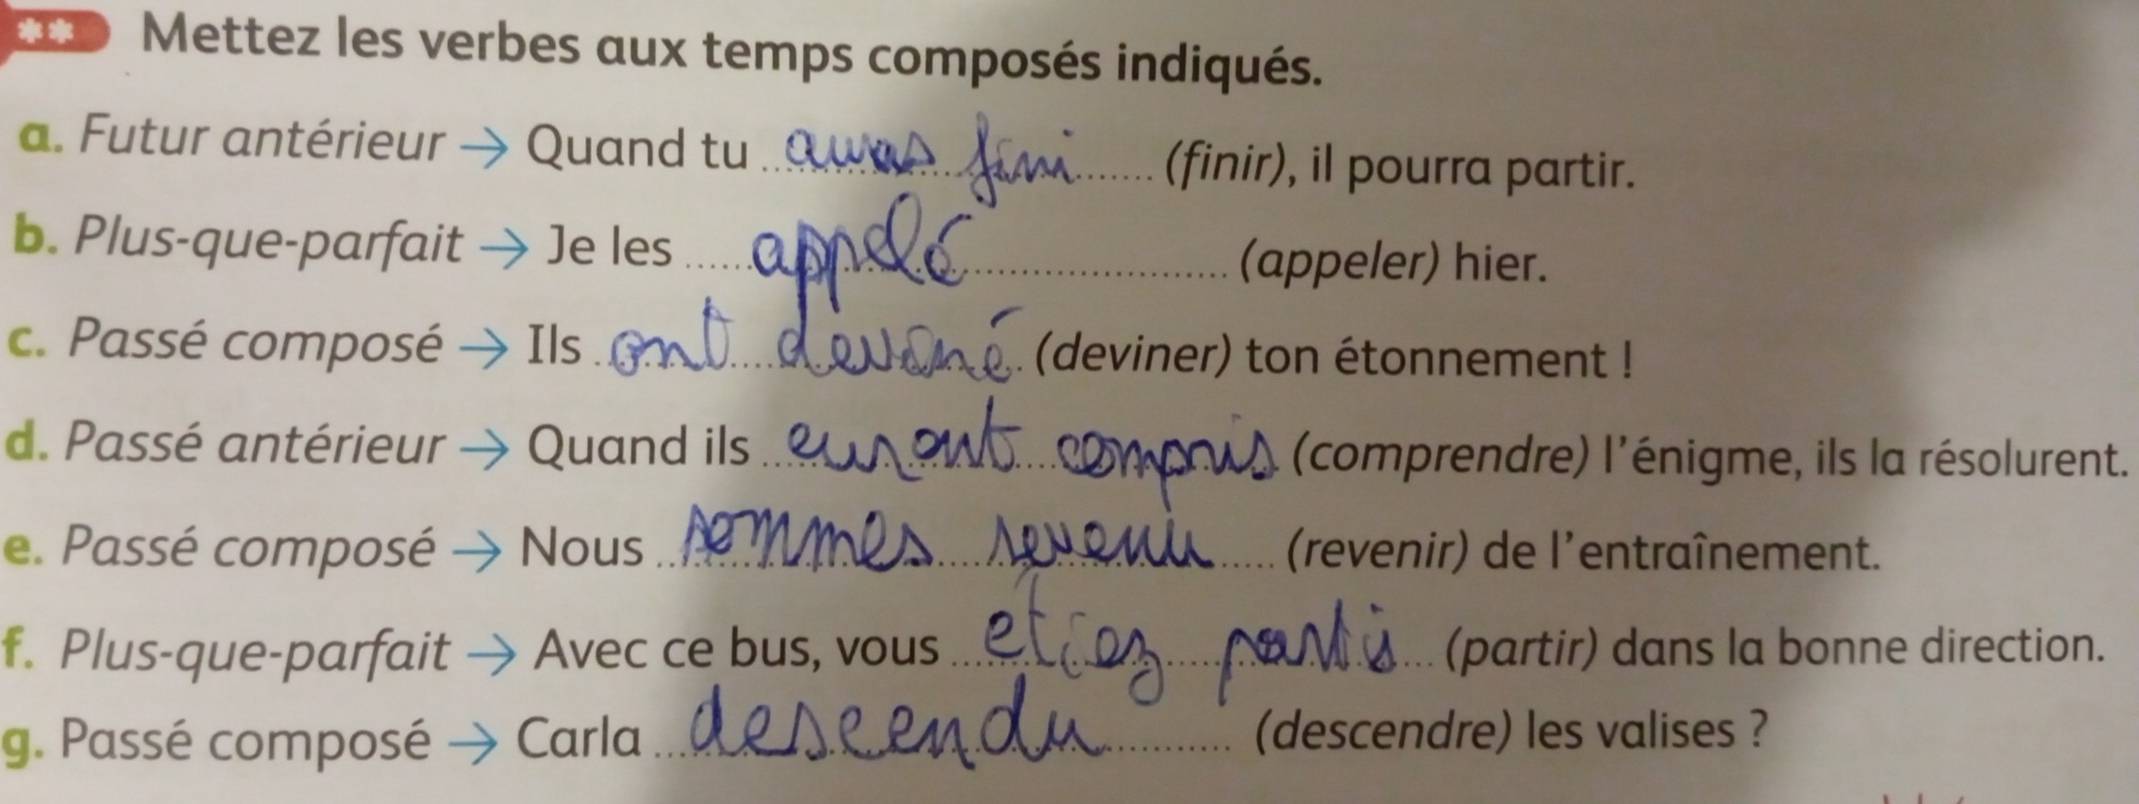 ** Mettez les verbes aux temps composés indiqués.
a. Futur antérieur → Quand tu auras fini (finir), il pourra partir.
b. Plus-que-parfait → Je les appelé (appeler) hier.
c. Passé composé → Ils ont deviné (deviner) ton étonnement !
d. Passé antérieur → Quand ils euront compris (comprendre) l'énigme, ils la résolurent.
e. Passé composé → Nous sommes revenu (revenir) de l'entraînement.
f. Plus-que-parfait → Avec ce bus, vous etiez partis (partir) dans la bonne direction.
g. Passé composé → Carla descendu (descendre) les valises ?